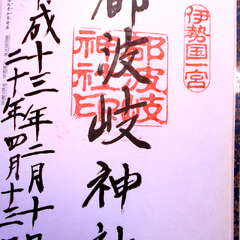 伊勢国一宮
都波岐神社
都波岐
神社印
成十三年二月十日
二十年四月十三